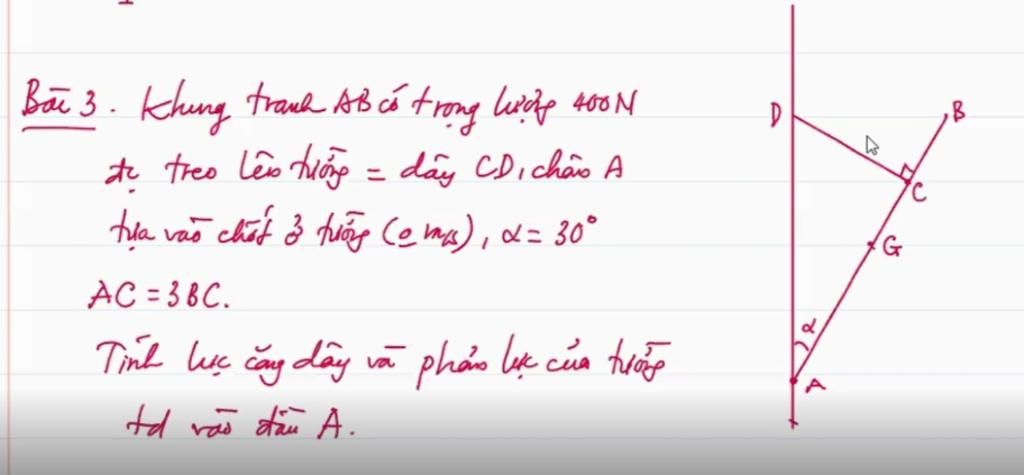 Bài 3. Khung tranh AB có trọng lượng 400N
đc treo lên tường = dây CD, chân A
tựa vào chốt ở tường (o ms), α = 30°
AC = 3BC.
Tính lực căng dây và phản lực của tường
td vào đầu A.
D
B
C
G
α
A